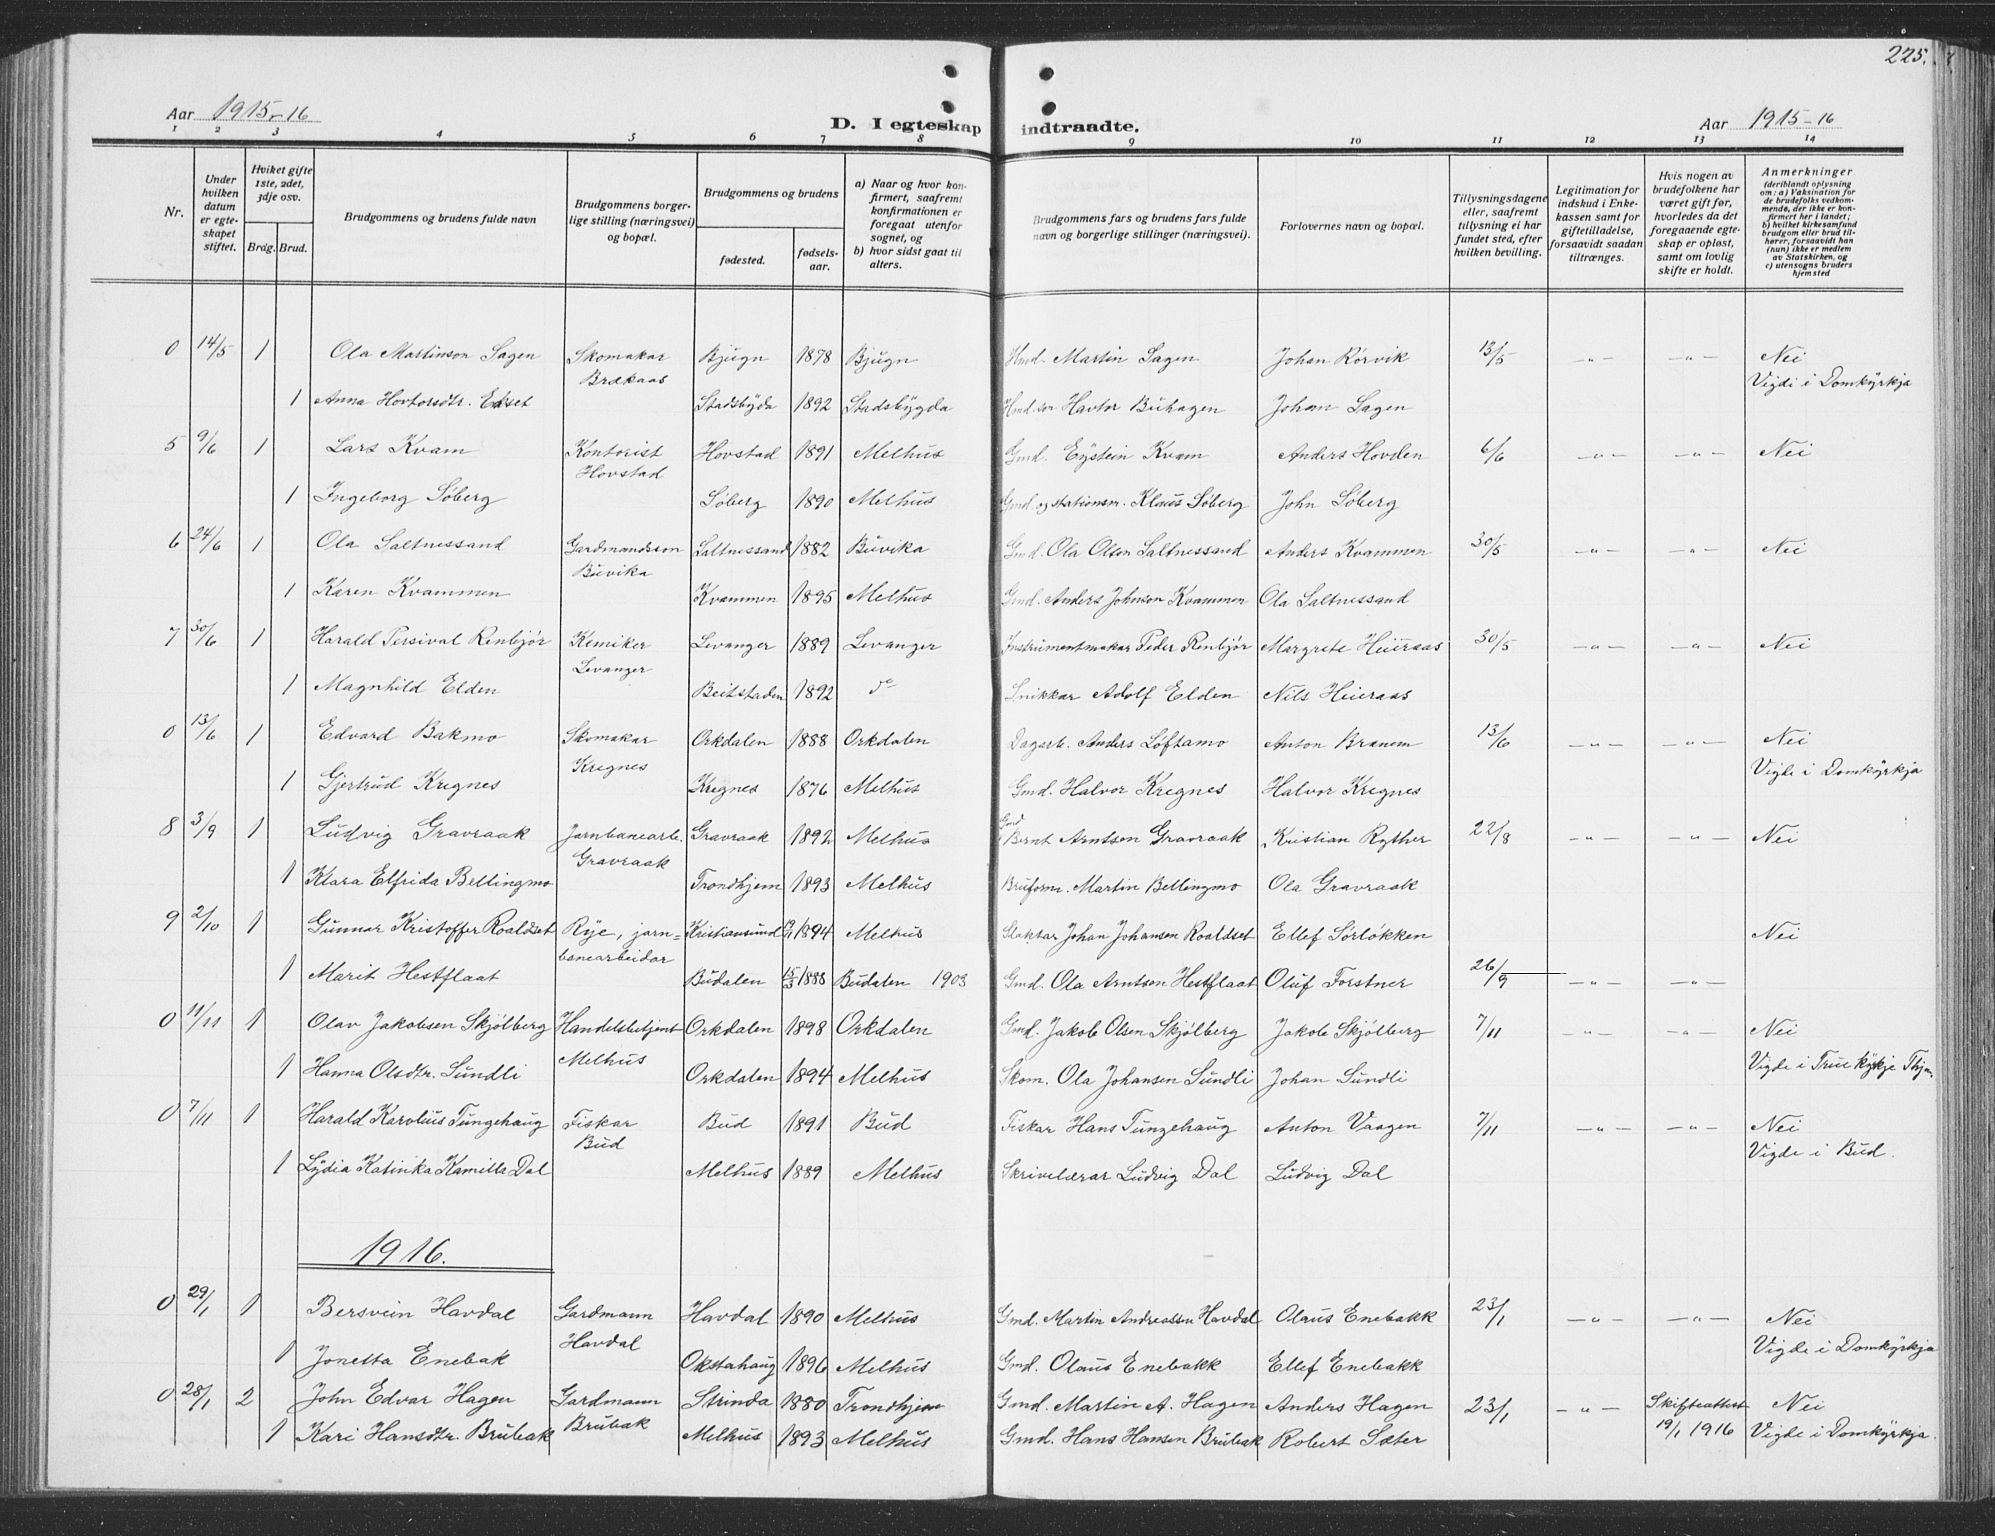 225.
Aar 1915-16
D. I egteskap indtraadte.
Aar 1915-16
1 2 3 4 5 6 7 8 9 10 11 12 13 14
Nr.
Under hvilken datum er egteskapet stiftet.
Hviket gifte 1ste, 2det, 3dje osv.
Brdg. Brud.
Brudgommens og brudens fulde navn
Brudgommens borgerlige stilling (næringsvei) og bopæl.
Brudgommens og brudens
fødested.
fødselsaar.
a) Naar og hvor konfirmert, saafremt konfirmationen er foregaat utenfor sognet, og
b) hvor sidst gaat til alters.
Brudgommens fars og brudens fars fulde navn og borgerlige stillinger (næringsvei).
Forlovernes navn og bopæl.
Tillysningsdagene eller, saafremt tillysning ei har fundet sted, efter hvilken bevilling.
Legitimation for indskud i Enkekassen samt for giftetilladelse, forsaavidt saadan tiltrænges.
Hvis nogen av brudefolkene har været gift før, hvorledes da det foregaaende egteskap er opløst, samt om lovlig skifte er holdt.
Anmerkninger (deriblandt oplysning om: a) Vaksination for de brudefolks vedkommende, der ikke er konfirmert her i landet; b) hvilket kirkesamfund brudgom eller brud tilhører, forsaavidt han (hun) ikke er medlem av Statskirken, og c) utensogns bruders hjemsted
0 14/5 1 Ola Martinson Sagen Skomakar Brækaas Bjugn 1878 Bjugn Hmd. Martin Sagen Johan Rørvik 13/5 -„- -„- Nei
Vigdi i Domkyrkja
1 Anna Hovtorsdtr. Ekset Stadsbyda 1892 Stadsbygda Hmd.son Havtor Buhagen Johan Sagen
5 9/6 1 Lars Kvam Kontorist Hovstad Hovstad 1891 Melhus Gmd. Eystein Kvam Anders Hovden 6/6 -„- -„- Nei
1 Ingeborg Søberg Søberg 1890 Melhus Gmd og stationsm. Klaus Søberg John Søberg
6 24/6 1 Ola Saltnessand Gardmandsson Buvika Saltnessand 1882 Buvika Gmd. Ola Olsen Saltnessand Anders Kvammen 30/5 -„- -„- Nei
1 Karen Kvammen Kvammen 1895 Melhus Gmd. Anders Johnson Kvammen Ola Saltnessand
7 30/6 1 Harald Persival Renbjør Kemiker Levanger Levanger 1889 Levanger Instrumentmakar Peder Renbjør Margrete Heieraas 30/5 -„- -„- Nei
1 Magnhild Elden Beitstaden 1892 do Snikkar Adolf Elden Nils Heieraas
0 13/6 1 Edvard Bakmo Skomakar Kregnes Orkdalen 1888 Orkdalen Dagarb. Anders Løftamo Anton Branem 13/6 -„- -„- Nei
Vigde i Domkyrkja
1 Gjertrud Kregnes Kregnes 1876 Melhus Gmd. Halvor Kregnes Halvor Kregnes
8 3/9 1 Ludvig Gravraak Jarnbanearb. Gravraak Gravraak 1892 Melhus Gmd Bernt Arntsen Gravraak Kristian Ryther 22/8 -„- -„- Nei
1 Klara Elfrida Bellingmo Trondhjem 1893 Melhus Bruform. Martin Bellingmo Ola Gravraak
9 2/10 1 Gunnar Kristoffer Roaldset Rye, jarnbanearbeidar Kristiansund 1894 Melhus Slaktar Johan Johansen Roaldset Ellef Sørløkken Nei
1 Marit Hestflaat Budalen 15/3 1888 Budalen 1903 Gmd. Ola Arntsen Hestflaat Oluf Forstner 26/9 -„- -„-
0 11/11 1 Olav Jakobsen Skjølberg Handelsbetjent Melhus Orkdalen 1898 Orkdalen Gmd. Jakob Olsen Skjølberg Jakob Skjølberg 7/11 -„- -„- Nei
1 Hanna Olsdtr. Sundli Orkdalen 1894 Melhus Skom. Ola Johansen Sundli Johan Sundli Vigde i Frue kyrkje Thjm
0 7/11 1 Harald Karolius Tungehaug Fiskar Bud Bud 1891 Bud Fiskar Hans Tungehaug Anton Vaagen 7/11 -„- -„- Nei
Vigde i Bud.
1 Lydia Katinka Kamilla Dal Melhus 1889 Melhus Skrivelærar Ludvig Dal Ludvig Dal
1916.
0 29/1 1 Bersvein Havdal Gardmann Havdal Havdal 1890 Melhus Gmd. Martin Andreassen Havdal Olaus Enebakk 23/1 -„- -„- Nei
Vigde i Domkyrkja
1 Jonetta Enebak Okstahaug 1896 Melhus Gmd. Olaus Enebakk Ellef Enebakk
0 28/1 2 John Edvar Hagen Gardmann Brubak Strinda 1880 Trondhjem Gmd. Martin A. Hagen Anders Hagen 23/1 -„- Skifteattest 19/1 1916 Nei
1 Kari Hansdtr. Brubak Melhus 1893 Melhus Gmd. Hans Hansen Brubak Robert Sæter Vigde i Domkyrkja.